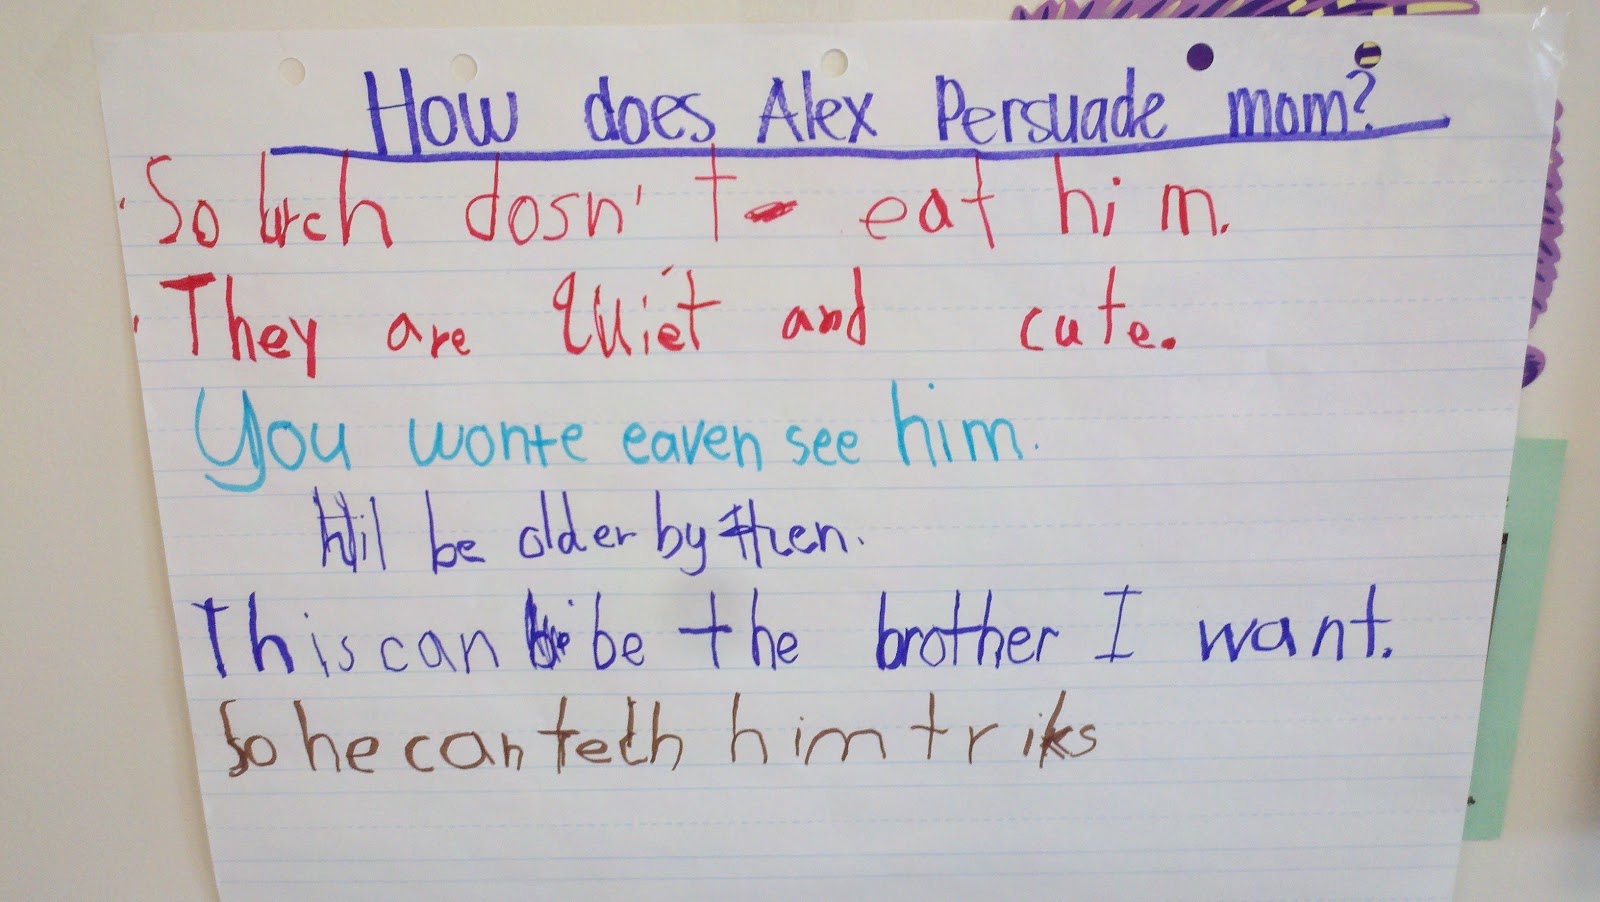 How does Alex Persuade mom?
· So lurch dosn't eat him.
· They are Quiet and cute.
You wonte eaven see him.
Hil be older by then.
This can be the brother I want.
So he can tech him triks